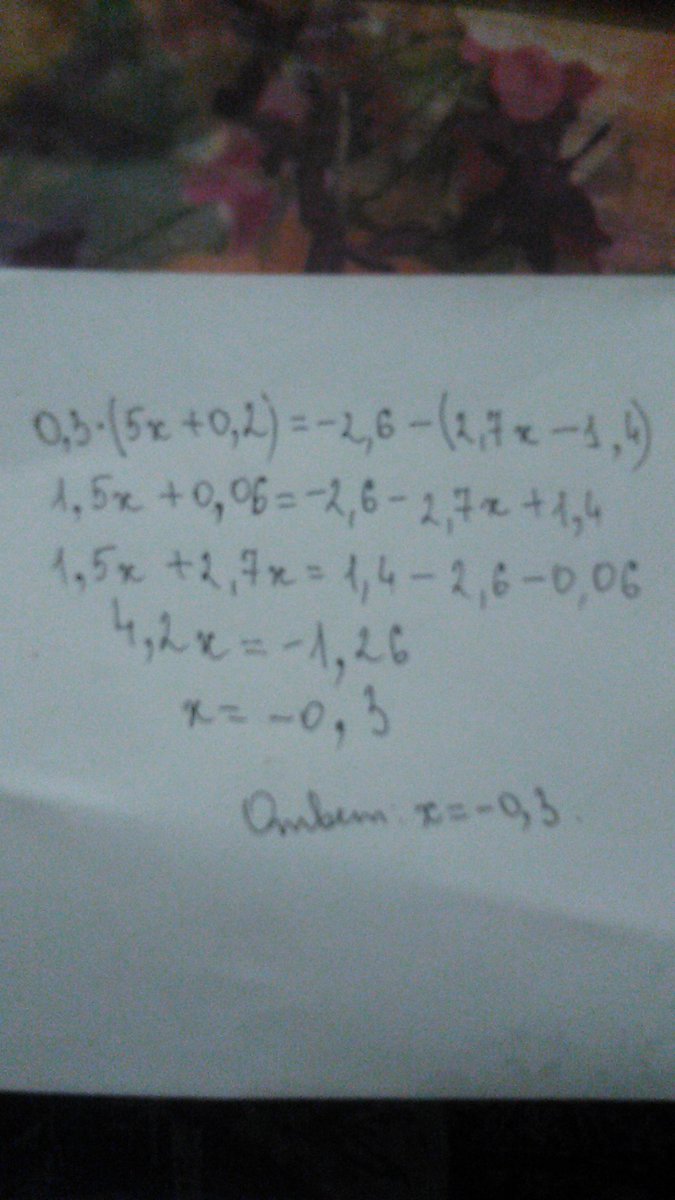 0,3·(5x+0,2)=-2,6-(2,7x-1,4)
1,5x+0,06=-2,6-2,7x+1,4
1,5x+2,7x=1,4-2,6-0,06
4,2x=-1,26
x=-0,3
Ответ: x=-0,3.